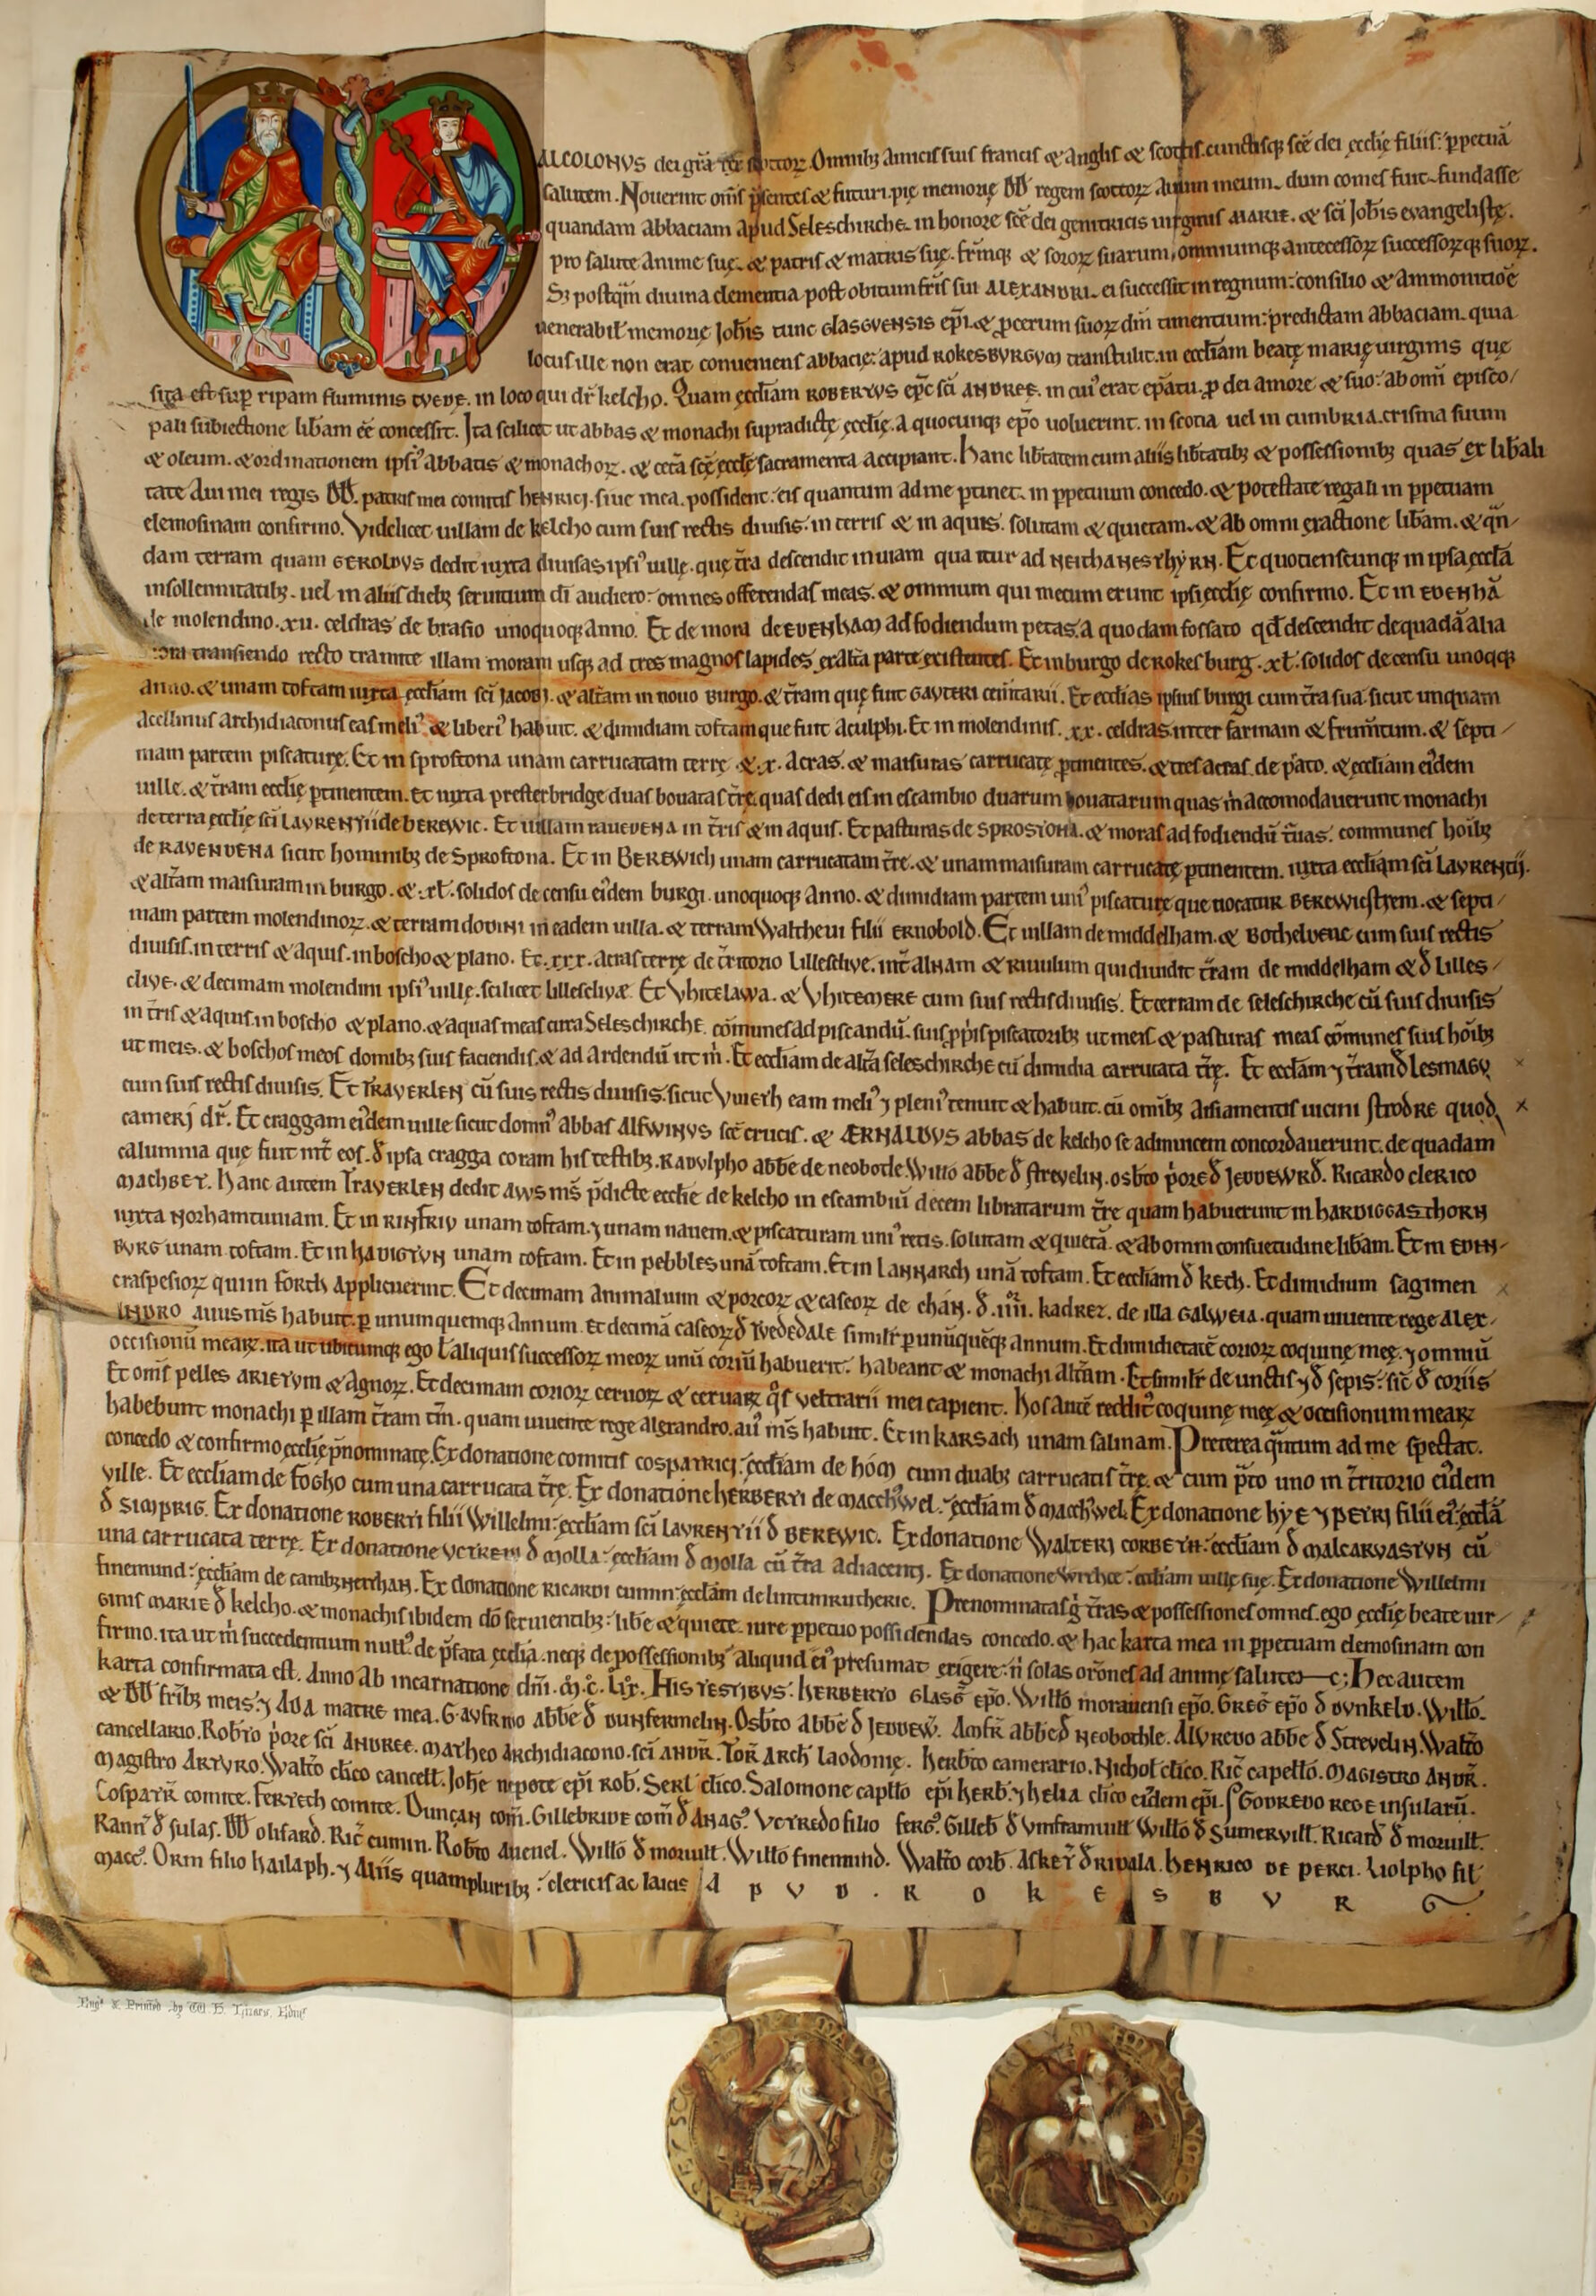 ALCOLONVS dei grā rex scottoꝝ. Omnibꝫ amicis suis francis & anglis & scottis. cunctisqꝫ scē dei ęcclię filiis: ꝑpetuā
salutem. Nouerint om̄s p̄sentes & futuri. pię memorię DD regem scottoꝝ Auum meum. dum comes fuit. fundasse
quandam abbaciam apud Seleschirche. in honore scē dei genitricis uirginis MARIE. & sc̄i Joh̄is evangelistę.
pro salute anime suę. & patris & matris suę. fr̄mqꝫ & soroꝝ suarum, omniumqꝫ antecessoꝝ successoꝝqꝫ suoꝝ.
Sꝫ postq̄m diuina clementia post obitum fr̄is sui ALEXANDRI. ei successit in regnum: consilio & ammonitiōe
uenerabilꝭ memorię Joh̄is tunc GLASGVENSIS ep̄i. & ꝓcerum suoꝝ dm̄ timentium: predictam abbaciam. quia
locus ille non erat conueniens abbacię: apud ROKESBVRGVM transtulit. in eccl̄iam beatę marię uirginis quę
sita est suꝑ ripam fluminis TVEDE. in loco qui dr̄ kelcho. Quam ęccl̄iam ROBERTVS epc̄ sc̄i ANDREE. in cui' erat ep̄atu. ꝓ dei amore & suo: ab om̄i episco/
pali subiectione lib̄am eē concessit. Ita scilicet ut abbas & monachi supradictę ęcclię. a quocunqꝫ ep̄o uoluerint. in scotia uel in CUMBRIA. crisma suum
& oleum. & ordinationem ipsi' abbatis & monachoꝝ. & cet̄a scę ęccl̄e sacramenta accipiant. Hanc lib̄tatem cum aliis lib̄tatibꝫ & possessionibꝫ quas ex lib̄ali
tate Aui mei regis DD. patris mei comitis HENRICI. siue mea. possident: eis quantum ad me ꝑtinet. in ꝑpetuum concedo. & potestate regali in ꝑpetuam
elemosinam confirmo. Videlicet uillam de kelcho cum suis rectis diuisis. in terris & in aquis. solutam & quietam. & ab omni exactione lib̄am. & q̄n/
dam terram quam GEROLDVS dedit iuxta diuisas ipsi' uillę. quę tr̄a descendit in uiam qua itur ad NEITHANESTHYRN. Et quotienscunqꝫ in ipsa ęccl̄ā
in sollennitatibꝫ. uel in aliis diebꝫ seruitium dī audiero: omnes offerendas meas. & omnium qui mecum erunt ipsi ęcclię confirmo. Et in EDENHĀ
de molendino. xii. celdras de brasio unoquoqꝫ anno. Et de mora de EDENHAM ad fodiendum petas. a quodam fossato qd̄ descendit de quadā alia
mora transiendo recto tramite illam moram usqꝫ ad tres magnos lapides ex alt̄a parte existentes. Et in burgo de Rokesburg. xl. solidos de censu unoqꝫ
anno. & unam toftam iuxta ęccl̄iam sc̄i JACOBI. & alt̄am in nouo BURGO. & tr̄am quę fuit GAVTERI cem̄tarii. Et eccl̄ias ipsius burgi cum tr̄a sua. sicut unquam
Acellinus Archidiaconus eas meli' & liberi' habuit. & dimidiam toftam que fuit Aculphi. Et in molendinis. xx. celdras inter farinam & frum̄tum. & septi/
mam partem piscaturę. Et in sprostona unam carrucatam terrę & x. Acras. & maisuras carrucatę ꝑtinentes. & tres acras de p̄ato. & ęccl̄iam ei'dem
uille. & tr̄am ecclię ꝑtinentem. Et iuxta presterbridge duas bouatas tr̄ę. quas dedi eis in escambio duarum bouatarum quas m̄ accomodauerunt monachi
de terra ęcclię sc̄i LAVRENTII de BEREWIC. Et uillam RAVEDENA in tr̄is & in aquis. Et pasturas de SPROSTONA. & moras ad fodiendū t̄uas: communes hoī̄bꝫ
de RAVENDENA sicut hominibꝫ de Sprostona. Et in BEREWICH unam carrucatam tr̄e. & unam maisuram carrucatę ꝑtinentem. iuxta eccl̄iam sc̄i LAVRENTII.
& alt̄am maisuram in burgo. & xl. solidos de censu ei'dem burgi. unoquoqꝫ Anno. & dimidiam partem uni' piscaturę que uocatur BEREWICSTREM. & septi/
mam partem molendinoꝝ. & terram DODINI in eadem uilla. & terram Waltheui filii ERNOBOLD. Et uillam de middelham. & BOTHELDENE cum suis rectis
diuisis. in terris & aquis. in boscho & plano. Et. xxx. acras terrę de tr̄ritorio Lilleschiue. int̄ ALNAM & riuulum qui diuidit tr̄am de middelham & đ Lilles/
cliue. & decimam molendini ipsi' uillę. scilicet lilleschiuę. Et Vhitelawa. & Vhitemere cum suis rectis diuisis. Et terram de seleschirche cū suis diuisis
in tr̄is & aquis. in boscho & plano. & aquas meas circa Seleschirche. cōmunes ad piscandū. suis ꝓpriis piscatoribꝫ ut meis. & pasturas meas cōmunes suis hoīb̄ꝫ
ut meis. & boschos meos domibꝫ suis faciendis. & ad Ardendū ut m̄. Et eccl̄iam de alt̄a seleschirche cū dimidia carrucata tr̄ę. Et eccl̄am ⁊ tr̄am đ LESMAGV.
cum suis rectis diuisis. Et TRAVERLEN cū suis rectis diuisis. sicut Vineth eam meli' ⁊ pleni' tenuit & habuit. cū omībꝫ Aisiamentis uicini STRODRE quod
cameri dr̄. Et craggam ei'dem uille sicut domn' abbas ALFWINVS scē crucis. & ÆRNALDVS abbas de kelcho se adinuicem concordauerunt. de quadam
calumnia quę fuit int̄ eos. đ ipsa cragga coram his testibꝫ. RADVLPHO abb̄e de neobotle. Willo abb̄e đ strevelin. osb̄to p̄ore đ JEDDEWRD. Ricardo clerico
MACHBET. Hanc autem TRAVERLEN dedit AVVS ms̄ p̄dicte ecclie de kelcho in escambiū decem libratarum tr̄e quam habuerunt in HARDIGGASTHORN
iuxta NORHAMTUNIAM. Et in RINFRIV unam toftam. ⁊ unam nauem. & piscaturam uni' retis. solutam & quietā. & ab omni consuetudine lib̄am. Et in EDIN-
BVRG unam toftam. Et in HADIGTVN unam toftam. Et in pebbles unā toftam. Et in LANNARCH unā toftam. Et ecclīam đ keth. Et dimidium sagimen
craspesioꝝ qui in Forth Applicuerint. Et decimam Animalium & porcoꝝ & caseoꝝ de chān. đ. iiii. kadrez. de illa GALWEIA. quam uiuente rege ALEX/
ANDRO auus ms̄ habuit. ꝑ unumquemqꝫ Annum. Et decimā caseoꝝ đ Tvededale simil̄r ꝑ unūquēqꝫ annum. Et dimidietatē corioꝝ coquinę meę. ⁊ omniū
occisionū mearꝝ. ita ut ubicumqꝫ ego l̄ aliquis successoꝝ meoꝝ unū coriū habuerit. habeant & monachi alt̄am. Et simil̄r de unctis ⁊ đ sepis: sic̄ đ coriis
Et om̄s pelles ARIETVM & Agnoꝝ. Et decimam corioꝝ ceruoꝝ & ceruarꝝ q̄s veltrarii mei capient. Hos autē reddit' coquinę meę & occisionum mearꝝ
habebunt monachi ꝑ illam tr̄am tm̄. quam uiuente rege alexandro. au' ms̄ habuit. Et in KARSACH unam salinam. Preterea q̄ntum ad me spectat.
concedo & confirmo ęcclię p̄nominatę. Ex donatione comitis COSPATRICI: ęccl̄iam de hōm cum duabꝫ carrucatis tr̄ę. & cum p̄to uno in tr̄ritorio ei'dem
ville. Et eccl̄iam de FOGHO cum una carrucata tr̄ę. Ex donatione HERBERTI de MACCH'WEL: ęccl̄iam đ MACCH'WEL. Ex donatione HYE ⁊ PETRI filii ei' ęccl̄ā
đ SIMPRIG. Ex donatione ROBERTI filii Willelmi: ęccl̄iam sc̄i LAVRENTII đ BEREWIC. Ex donatione WALTERI CORBETH: eccl̄iam đ MALCARVASTVN cū
una carrucata terrę. Ex donatione VCTREDI đ MOLLA: ęccl̄iam đ MOLLA cū tr̄a adiacenti. Ex donatione Writhce: eccl̄iam uillę suę. Ex donatione Willelmi
finemund: ęccl̄iam de cambꝫnethan. Ex donatione RICARDI cumin: ęccl̄am de lintunruderic. Prenominatas g̊ tr̄as & possessiones omnes. ego ęcclię beate uir/
ginis MARIE đ kelcho. & monachis ibidem dō seruientibꝫ: lib̄e & quiete. iure ꝑpetuo possidendas concedo. & hac karta mea in ꝑpetuam elemosinam con
firmo. ita ut m̄ succedentium null' de p̄fata ęccl̄ia. neqꝫ de possessionibꝫ aliquid ei' presumat exigere. n̄ solas orōnes ad animę salutē. Hec autem
karta confirmata est. Anno ab incarnatione dm̄. M. C. Lix. HIS TESTIBVS. HERBERTO GLASḠ ep̄o. Will̄o morauensi ep̄o. GREḠ ep̄o đ DVNKELD. Will̄o.
& DD fr̄ibꝫ meis. ⁊ ADA MATRE mea. GAVFRIDO abb̄e đ DUNFERMELIN. Osb̄to abb̄e đ JEDDEW̄. Amfr̄ abb̄e đ NEOBOTHLE. ALVREDO abbe đ STREVELIN. Walt̄o
cancellario. Rob̄to p̄ore sc̄i ANDREE. MATHEO Archidiacono. sc̄i ANDR̄. TOR̄ ARCH̄ laodonię. Herb̄to camerario. Nichol̄ clico. Ric̄ capell̄o. MAGISTRO ANDR̄.
magistro ARTVRO. Walt̄o cl̄ico cancell̄. Joh̄e nepote ep̄i rob̄. SERL̄ clico. Salomone capl̄lo ep̄i HERB̄. ⁊ helia clico ei'dem ep̄i. GODREDO REGE INSULARŪ.
COSPATR̄ comite. FERTETH comite. DUNCAN com̄. GILLEBRIDE com̄ đ ANAG'. VCTREDO filio FERG'. Gilleb̄ đ Vmframuill̄ Will̄o đ Sumervill̄. Ricard̄ đ moruill̄.
Rann̄ đ sulas. DD olifard. Ric̄ cumin. Rob̄to Auenel. Will̄o đ moruill̄. Will̄o finemund. Walt̄o corb̄. ASKET̄ đ RIDALA. HENRICO DE PERCI. Liolpho fil̄
MACC'. Orm filio hailaph. ⁊ Aliis quampluribꝫ: clericis ac laicis APVD. ROKESBVRG.
Eng.d & Printed by